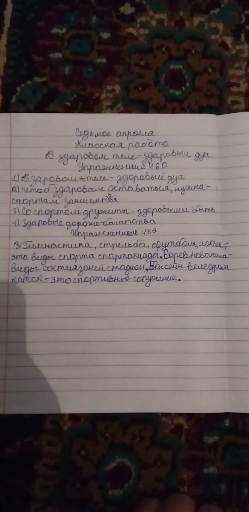 Седьмое апреля
Классная работа
В здоровом теле - здоровый дух
Упражнение 460
1) В здоровом теле - здоровый дух.
2) Чтоб здоровым оставаться, нужно
спортом заниматься
3) Со спортом дружить - здоровым быть
4) Здоровье дороже богатства
Упражнение
Гимнастика, стрельба, футбол,
это виды спорта
виды состязаний стадион, Бассейн велодром
каток - это спортивные